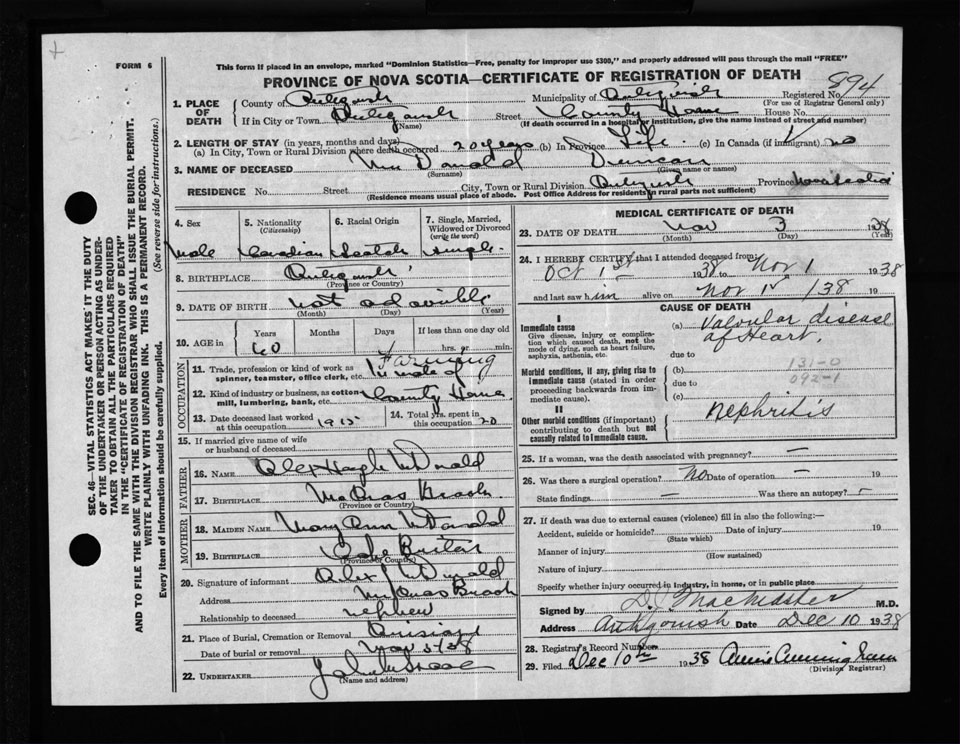 FORM 6
This form if placed in an envelope, marked "Dominion Statistics—Free, penalty for improper use $300," and properly addressed will pass through the mail "FREE"
PROVINCE OF NOVA SCOTIA—CERTIFICATE OF REGISTRATION OF DEATH
894
1. PLACE OF DEATH
County of Antigonish Municipality of Antigonish Registered No.
(For use of Registrar General only)
If in City or Town Antigonish (Name) Street County Home House No.
(If death occurred in a hospital or institution, give the name instead of street and number)
2. LENGTH OF STAY (in years, months and days)
(a) In City, Town or Rural Division where death occurred 20 years (b) In Province Life (c) In Canada (if immigrant) no
3. NAME OF DECEASED McDonald (Surname) Duncan (Given name or names)
RESIDENCE No. Street City, Town or Rural Division Antigonish Province Nova Scotia
(Residence means usual place of abode. Post Office Address for residents in rural parts not sufficient)
SEC. 46—VITAL STATISTICS ACT MAKES IT THE DUTY
OF THE UNDERTAKER OR PERSON ACTING AS UNDER-
TAKER TO OBTAIN ALL THE PARTICULARS REQUIRED
IN THE "CERTIFICATE OF REGISTRATION OF DEATH"
AND TO FILE THE SAME WITH THE DIVISION REGISTRAR WHO SHALL ISSUE THE BURIAL PERMIT.
WRITE PLAINLY WITH UNFADING INK. THIS IS A PERMANENT RECORD.
Every item of information should be carefully supplied. (See reverse side for instructions.)
4. Sex
Male
5. Nationality (Citizenship)
Canadian
6. Racial Origin
Scotch
7. Single, Married, Widowed or Divorced (write the word)
Single
8. BIRTHPLACE Antigonish
(Province or County)
9. DATE OF BIRTH not
(Month) (Day) (Year)
10. AGE in Years Months Days If less than one day old
60 hrs. or min.
OCCUPATION
11. Trade, profession or kind of work as spinner, teamster, office clerk, etc. Farming
Inmate of
12. Kind of industry or business, as cotton-mill, lumbering, bank, etc. County Home
13. Date deceased last worked at this occupation 1915
14. Total yrs. spent in this occupation 20
15. If married give name of wife or husband of deceased
FATHER
16. NAME Alex Hugh McDonald
17. BIRTHPLACE Brook
(Province or Country)
MOTHER
18. MAIDEN NAME Mary Ann McDonald
19. BIRTHPLACE Cape Breton
(Province or Country)
20. Signature of informant Alex J McDonald
Address Brook
Relationship to deceased nephew
21. Place of Burial, Cremation or Removal
Date of burial or removal Nov 5/38
22. UNDERTAKER John
(Name and address)
MEDICAL CERTIFICATE OF DEATH
23. DATE OF DEATH Nov 3 1938
(Month) (Day) (Year)
24. I HEREBY CERTIFY that I attended deceased from
Oct 1st 1938 Nov 1 1938
and last saw him alive on Nov 1st /38 19
CAUSE OF DEATH
I
Immediate cause
Give disease, injury or complication which caused death, not the mode of dying, such as heart failure, asphyxia, asthenia, etc.
(a) Valvular disease of Heart.
due to
Morbid conditions, if any, giving rise to immediate cause (stated in order proceeding backwards from immediate cause).
(b) 131-0
due to 092-1
(c)
II
Other morbid conditions (if important) contributing to death but not causally related to immediate cause.
Nephritis
25. If a woman, was the death associated with pregnancy? —
26. Was there a surgical operation? no Date of operation — 19
State findings — Was there an autopsy? –
27. If death was due to external causes (violence) fill in also the following:—
Accident, suicide or homicide? Date of injury 19
(State which)
Manner of injury
(How sustained)
Nature of injury
Specify whether injury occurred in industry, in home, or in public place
Signed by MacMaster M.D.
Address Antigonish Date Dec 10 1938
28. Registrar's Record Number
29. Filed Dec 10th 1938 Annie Cunningham
(Division Registrar)